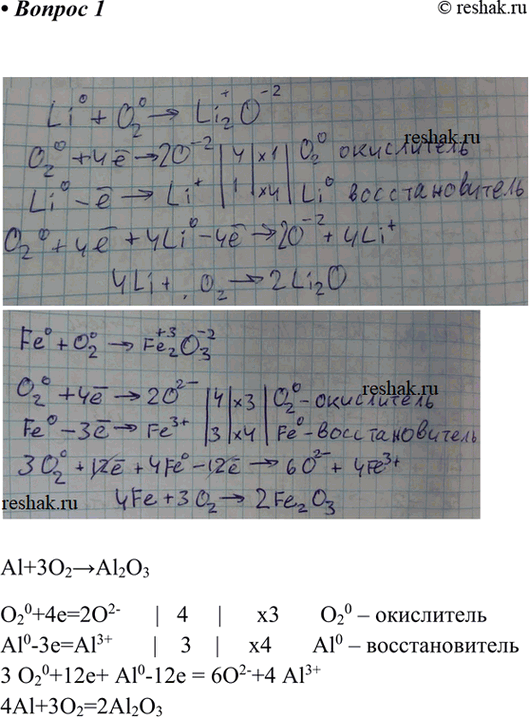 • Вопрос 1
© reshak.ru
Li⁰ + O₂⁰ → Li₂⁺O⁻²
reshak.ru
O₂⁰ + 4ē → 2O⁻² | 4 | x1 | O₂⁰ окислитель
Li⁰ − ē → Li⁺ | 1 | x4 | Li⁰ восстановитель
O₂⁰ + 4ē + 4Li⁰ − 4ē → 2O⁻² + 4Li⁺
4Li + O₂ → 2Li₂O
Fe⁰ + O₂⁰ → Fe₂⁺³O₃⁻²
reshak.ru
O₂⁰ + 4ē → 2O²⁻ | 4 | x3 | O₂⁰ - окислитель
Fe⁰ − 3ē → Fe³⁺ | 3 | x4 | Fe⁰ - восстановитель
3O₂⁰ + 12ē + 4Fe⁰ − 12ē → 6O²⁻ + 4Fe³⁺
4Fe + 3O₂ → 2Fe₂O₃
reshak.ru
Al+3O₂→Al₂O₃
O₂⁰+4e=2O²⁻ | 4 | x3 O₂⁰ – окислитель
Al⁰-3e=Al³⁺ | 3 | x4 Al⁰ – восстановитель
3 O₂⁰+12e+ Al⁰-12e = 6O²⁻+4 Al³⁺
4Al+3O₂=2Al₂O₃